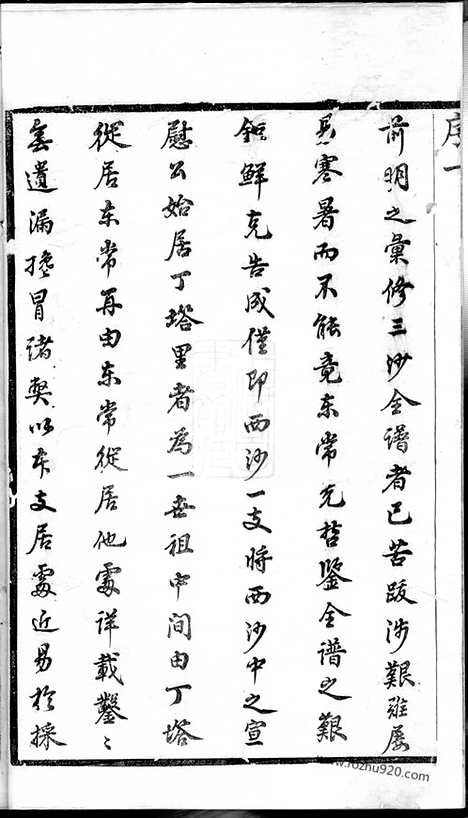 序一
前明之彙修三沙全譜者已苦跋涉艱難屡
易寒暑而不能竟东常克哲鑒全譜之艱
鉅鮮克告成僅即西沙一支時西沙中之宣
慰公始居丁塔里者為一世祖中间由丁塔
從居东常再由东常從居他處详載鑿〻
無遺漏攙冒诸契以本支居處近易於採
www.rozhu920.com